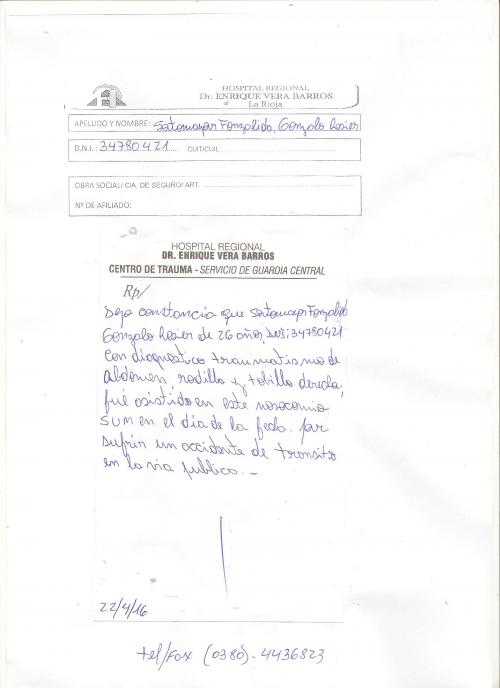 HOSPITAL REGIONAL
Dr. ENRIQUE VERA BARROS
La Rioja
APELLIDO Y NOMBRE: Gonzalo
D.N.I.: 34780421 CUIT/CUIL:
OBRA SOCIAL/ CIA. DE SEGURO/ ART.
Nº DE AFILIADO:
HOSPITAL REGIONAL
DR. ENRIQUE VERA BARROS
CENTRO DE TRAUMA - SERVICIO DE GUARDIA CENTRAL
Rp/
Dejo constancia que
Gonzalo de 26 años, DNI: 34780421
con diagnostico traumatismo de
abdomen, rodilla y tobillo derecha,
fue asistido en este nosocomio
en el dia de la fecha. por
sufrir un accidente de transito
en la via publica. -
22/4/16
tel/fax (0380)- 4436823